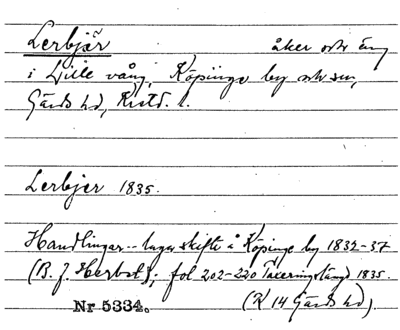 Lerbjär åker och äng
i Lille vång, Köpinge by och sn,
Gärds hd, Krstd. l.
Lerbjer 1835.
Handlingar -- laga skifte å Köpinge by 1832-37
(B. J. Herbst); fol 202-220 Taxeringslängd 1835.
Nr 5334. (K 14 Gärds hd).